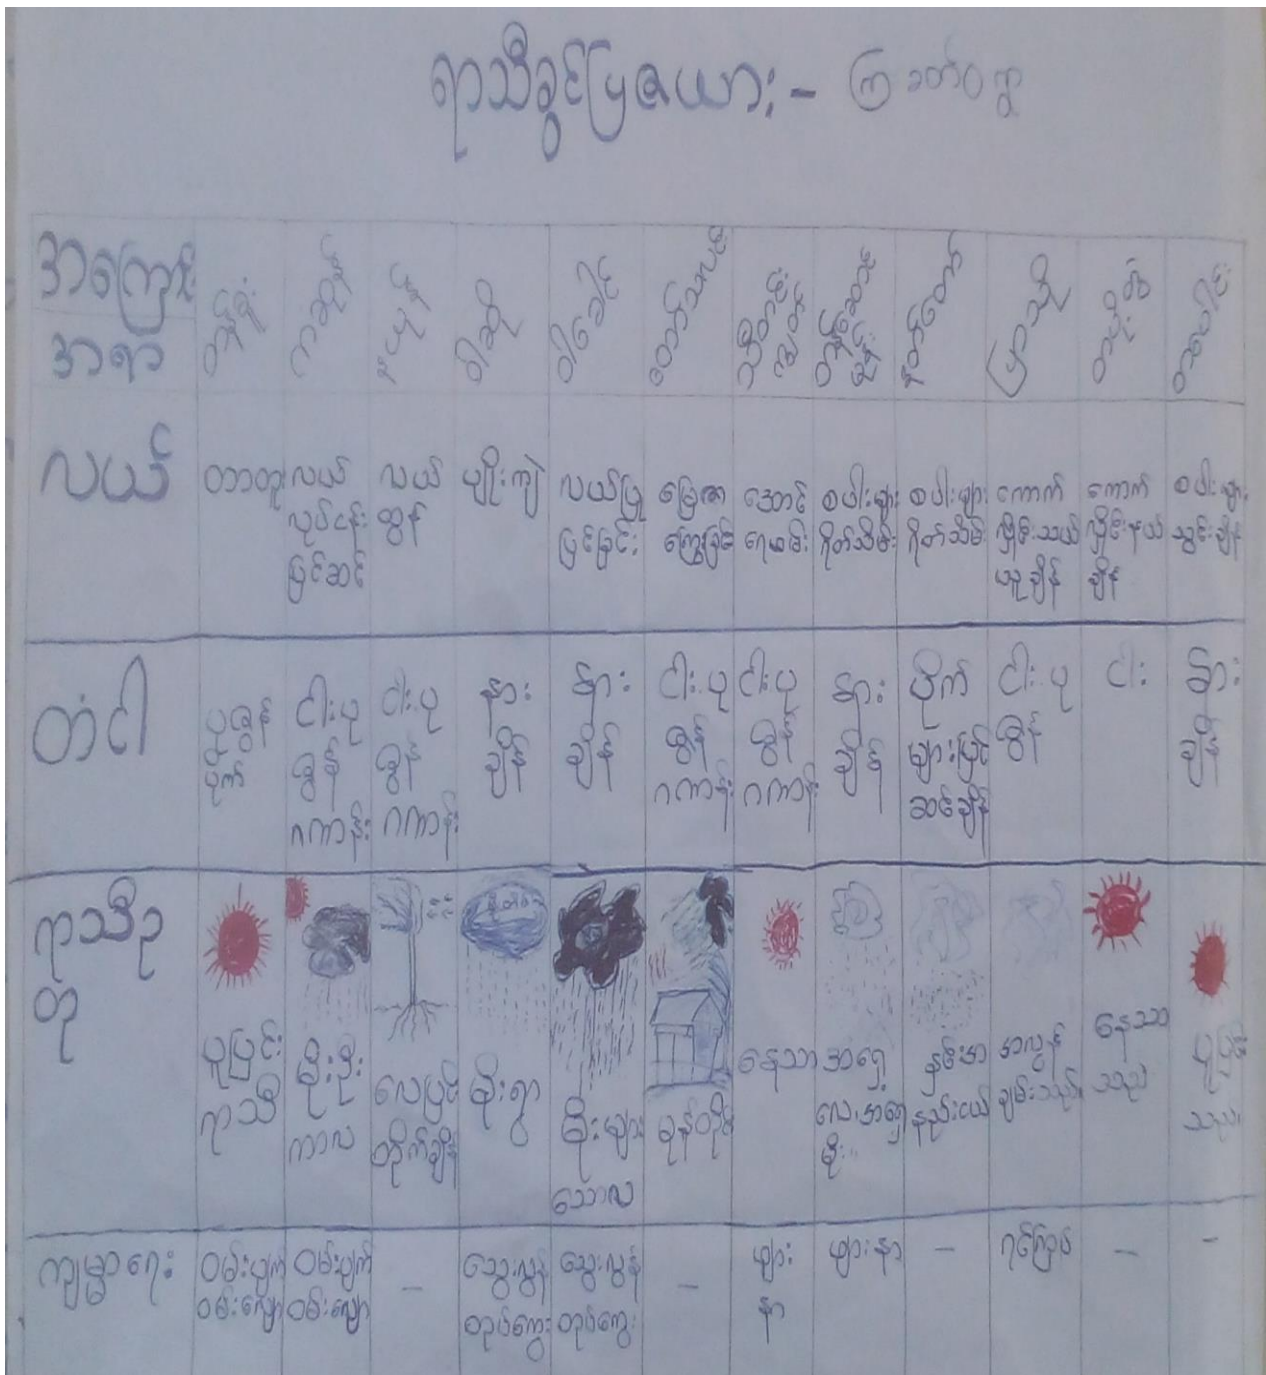 ရာသီခွင်ပြဇယား -
အကြောင်း
အရာ
တန်ခူး
ကဆုန်
နယုန်
ဝါဆို
ဝါခေါင်
တော်သလင်း
သီတင်း
ကျွတ်
တန်ဆောင်
မုန်း
နတ်တော်
ပြာသို
တပို့တွဲ
တပေါင်း
လယ်
တာတူး
လယ်
လုပ်ငန်း
ပြင်ဆင်
လယ်
ထွန်
မျိုးကျဲ
လယ်ပြု
ပြင်ခြင်း
မြေဩဇာ
ကြွေးခြင်း
အောင်
ရေဖမ်း
စပါးများ
ရိတ်သိမ်း
စပါးများ
ရိတ်သိမ်း
ကောက်
လှိုင်းသယ်
ယူချိန်
ကောက်
လှိုင်းနယ်
ချိန်
စပါးများ
သွင်းချိန်
တံငါ
ပုဇွန်
ပိုက်
ငါး၊ပု
ဇွန်
ဂဏန်း
ငါး၊ပု
ဇွန်
ဂဏန်း
နား
ချိန်
နား
ချိန်
ငါး၊ပု
ဇွန်
ဂဏန်း
ငါး၊ပု
ဇွန်
ဂဏန်း
နား
ချိန်
ပိုက်
များပြင်
ဆင်ချိန်
ငါး၊ပု
ဇွန်
ငါး
နား
ချိန်
ရာသီဥ
တု
ပူပြင်း
ရာသီ
မိုးဦး
ကာလ
လေပြင်း
တိုက်ချိန်
မိုးရွာ
မိုးများ
သောလ
မုန်တိုင်း
နေသာ
အရှေ့
လေ၊အရှေ့
မိုး
နှင်းအ
နည်းငယ်
အလွန်
ချမ်းသည်
နေသာ
သည်
ပူပြင်း
သည်
ကျန်းမာရေး
ဝမ်းပျက်
ဝမ်းလျော
ဝမ်းပျက်
ဝမ်းလျော
-
သွေးလွန်
တုပ်ကွေး
သွေးလွန်
တုပ်ကွေး
-
ဖျား
နာ
ဖျားနာ
-
ရင်ကြပ်
-
-